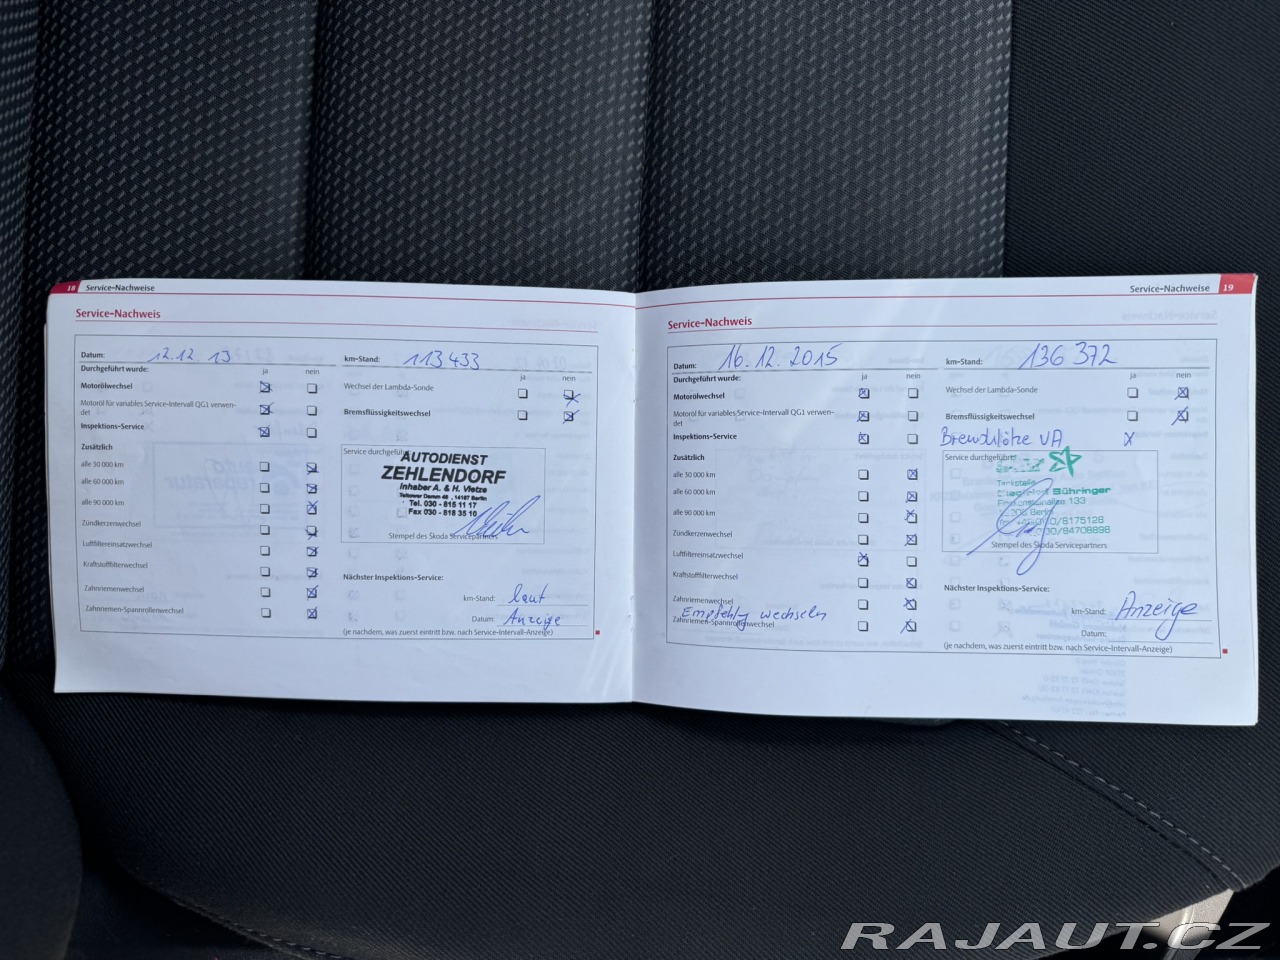 18 Service-Nachweise
Service-Nachweis
Datum: 12.12.13 km-Stand: 113 433
Durchgeführt wurde: ja nein ja nein
Motorölwechsel Wechsel der Lambda-Sonde
Motoröl für variables Service-Intervall QG1 verwen-
det
Bremsflüssigkeitswechsel
Inspektions-Service
Zusätzlich
alle 30 000 km
alle 60 000 km
alle 90 000 km
Zündkerzenwechsel
Luftfiltereinsatzwechsel
Kraftstofffilterwechsel
Zahnriemenwechsel
Zahnriemen-Spannrollenwechsel
Service durchgeführt
AUTODIENST
ZEHLENDORF
Inhaber A. & H. Vietze
Teltower Damm 48, 14167 Berlin
Tel. 030 - 815 11 17
Fax 030 - 818 35 10
Stempel des Škoda Servicepartners
Nächster Inspektions-Service:
km-Stand: laut
Datum: Anzeige
(je nachdem, was zuerst eintritt bzw. nach Service-Intervall-Anzeige)
Service-Nachweise 19
Service-Nachweis
Datum: 16.12.2015 km-Stand: 136 372
Durchgeführt wurde: ja nein ja nein
Motorölwechsel Wechsel der Lambda-Sonde
Motoröl für variables Service-Intervall QG1 verwen-
det
Bremsflüssigkeitswechsel
Inspektions-Service
Bremsklötze VA x
Zusätzlich
alle 30 000 km
alle 60 000 km
alle 90 000 km
Zündkerzenwechsel
Luftfiltereinsatzwechsel
Kraftstofffilterwechsel
Zahnriemenwechsel
Empfehlg wechseln
Zahnriemen-Spannrollenwechsel
Service durchgeführt
Tankstelle
Bühringer
133
Berlin
/8175128
/84708898
Stempel des Škoda Servicepartners
Nächster Inspektions-Service:
km-Stand: Anzeige
Datum:
(je nachdem, was zuerst eintritt bzw. nach Service-Intervall-Anzeige)
RAJAUT.CZ